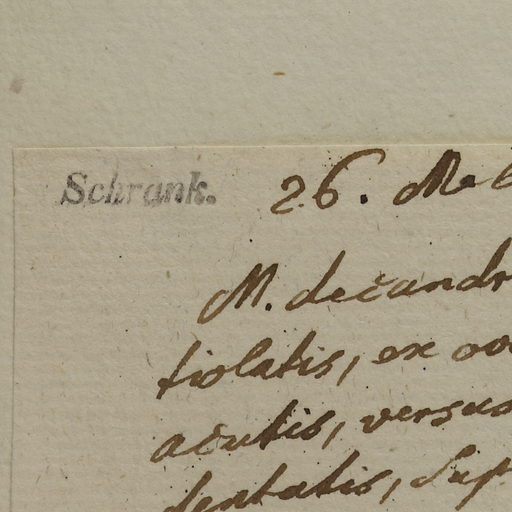 Schrank.
26. Me
M. decandr
tiolatis, ex ov
acutis, versus
dentatis, sup